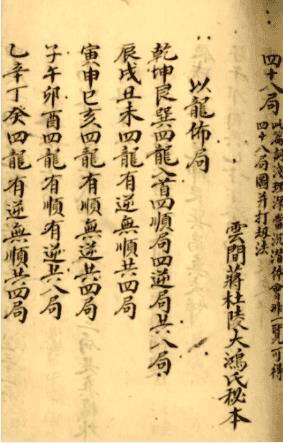 四十八局
此篇詞淺理深當沉潛体會非一覽可得
四十八局圖并打刼法
雲間蔣杜陵大鴻氏秘本
以龍佈局
乾坤艮巽四龍入首四順局四逆局共八局
辰戌丑未四龍有順無逆共四局
寅申巳亥四龍有順有逆共四局
子午卯酉四龍有順有逆共八局
乙辛丁癸四龍有逆無順共四局